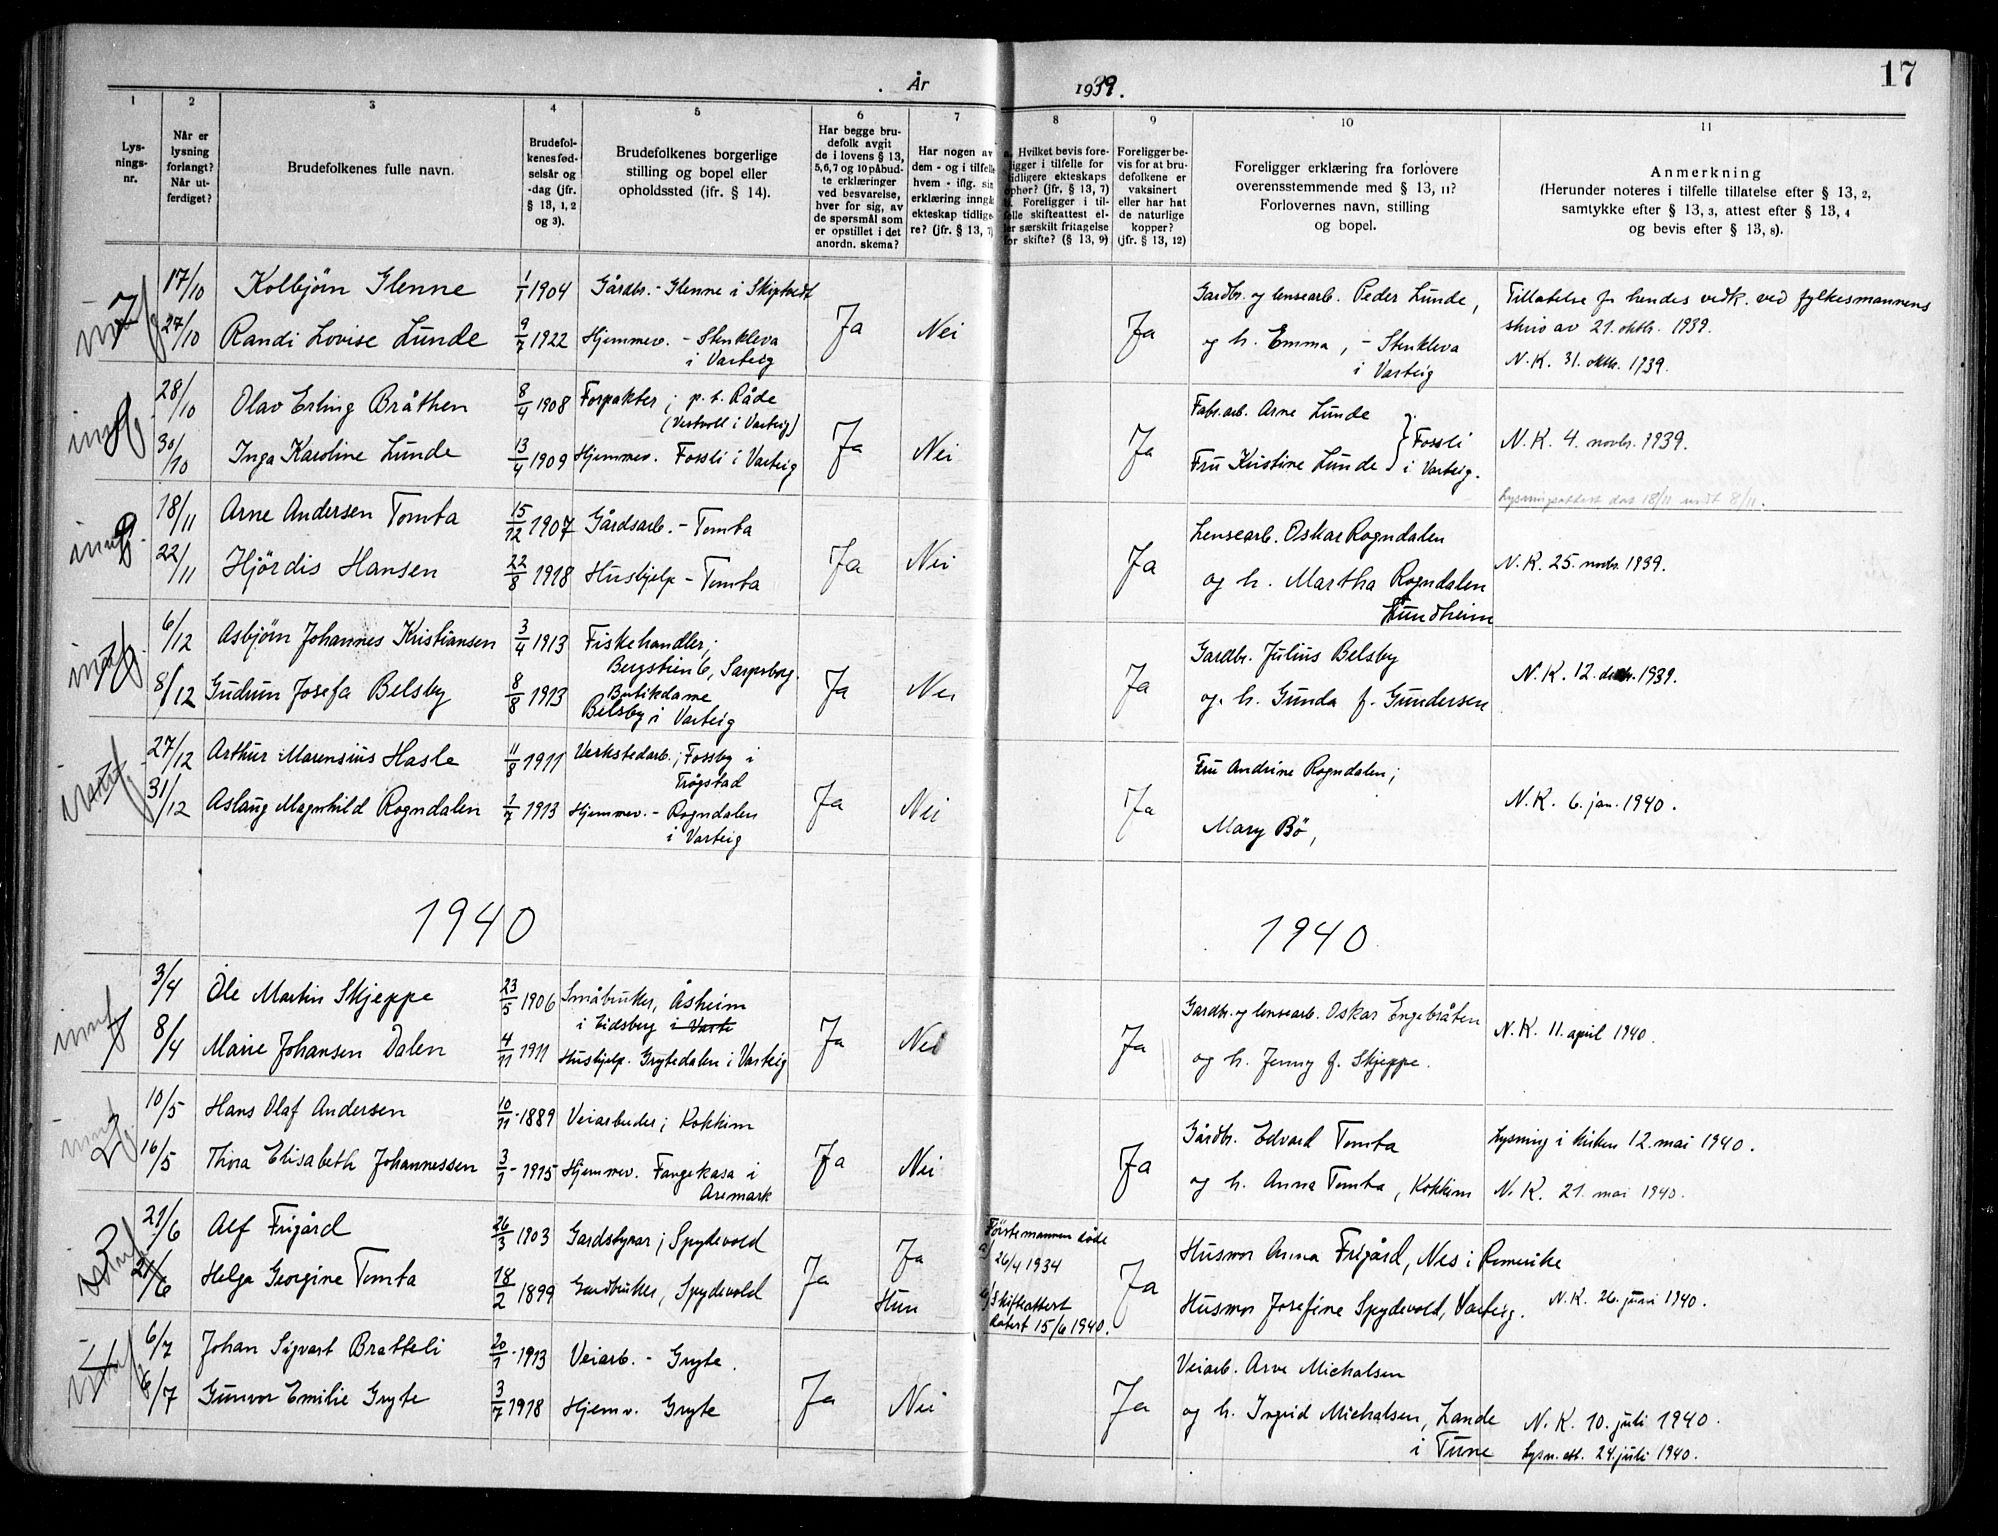 År 1939.
17
1 2 3 4 5 6 7 8 9 10 11
Lys-
nings-
nr.
Når er
lysning
forlangt?
Når ut-
ferdiget?
Brudefolkenes fulle navn.
Brudefol-
kenes fød-
selsår og
-dag (jfr.
§ 13, 1, 2
og 3).
Brudefolkenes borgerlige
stilling og bopel eller
opholdssted (jfr. § 14).
Har begge bru-
defolk avgit
de i lovens § 13,
5, 6, 7 og 10 påbud-
te erklæringer
ved besvarelse,
hver for sig, av
de spørsmål som
er opstillet i det
anordn. skema?
Har nogen av
dem - og i tilfelle
hvem - iflg. sin
erklæring inngå
ekteskap tidlige-
re? (jfr. § 13, 7)
a. Hvilket bevis fore-
ligger i tilfelle for
tidligere ekteskaps
ophør? (jfr. § 13, 7)
b. Foreligger i til-
felle skifteattest el-
ler særskilt fritagelse
for skifte? (§ 13, 9)
Foreligger be-
vis for at bru-
defolkene er
vaksinert
eller har hat
de naturlige
kopper?
(jfr. § 13, 12)
Foreligger erklæring fra forlovere
overensstemmende med § 13, 11?
Forlovernes navn, stilling
og bopel.
Anmerkning
(Herunder noteres i tilfelle tillatelse efter § 13, 2,
samtykke efter § 13, 3, attest efter § 13, 4
og bevis efter § 13, 8).
17/10 Kolbjørn Glenne 1/1 1904 Gårdbr. - Glenne i Skiptvedt
27/10 Randi Lovise Lunde 9/7 1922 Hjemmev. - Stenkleva
i Varteig
Ja Nei Ja
Gardbr. og lensearb. Peder Lunde,
og h. Emma, - Stenkleva
i Varteig
Tillatelse f. hendes vedk. ved fylkesmannens
skriv av 21. oktbr. 1939.
N.K. 31. oktbr. 1939.
28/10 Olav Erling Bråthen 8/4 1908 Forpakter; p.t. Råde
(Vestvoll i Varteig)
30/10 Inga Karoline Lunde 13/4 1909 Hjemmev. Fossli i Varteig
Ja Nei Ja
Fabr.arb. Arne Lunde
Fru Kristine Lunde } Fossli
i Varteig.
N.K. 4. novbr. 1939.
18/11 Arne Andersen Tomta 15/12 1907 Gårdsarb. - Tomta
22/11 Hjördis Hansen 22/8 1918 Hushjelp - Tomta
Ja Nei Ja
Lensearb. Oskar Rogndalen
og h. Martha Rogndalen
Lundheim
Lysningsattest dat 18/11 8/11.
N.K. 25. novbr. 1939.
6/12 Asbjørn Johannes Kristiansen 3/4 1913 Fiskehandler;
Bergstien 6, Sarpsborg.
8/12 Gudrun Josefa Belsby 8/8 1913 Butikdame
Belsby i Varteig
Ja Nei Ja
Gardbr. Julius Belsby
og h. Gunda f. Gundersen
N.K. 12. desbr. 1939.
27/12 Arthur Marensius Hasle 11/8 1911 Verkstedarb.; Fossby i
Trøgstad
31/12 Aslaug Magnhild Rogndalen 1/7 1913 Hjemmev. - Rogndalen
i Varteig
Ja Nei Ja
Fru Andrine Rogndalen;
Mary Bö,
N.K. 6. jan. 1940.
1940 1940
3/4 Ole Martin Skjeppe 23/5 1906 Småbruker, Åsheim
i Eidsberg i Varte
8/4 Marie Johansen Dalen 4/11 1911 Hushjelp. Grytedalen i Varteig
Ja Nei Ja
Gardbr. og lensearb. Oskar Engebråten
og h. Jenny f. Skjeppe.
N.K. 11. april 1940.
2 10/5 Hans Olaf Andersen 10/11 1889 Veiarbeider; Kokkim
16/5 Thora Elisabeth Johannessen 3/1 - 1915 Hjemmev. Fangekasa i
Aremark
Ja Nei Ja
Gårdbr. Edvard Tomta
og h. Anna Tomta, Kokkim
Lysning i kirken 12. mai 1940.
N.K. 21. mai 1940.
3 21/6 Alf Frigård 26/3 1903 Gardstyrar; Spydevold
21/6 Helga Georgine Tomta 18/2 1899 Gardbruker, Spydevold
Ja Ja
Hun
a) Förstemannen döde
26/4 1934
b) Skifteattest
datert 15/6 1940.
Ja
Husmor Anna Frigård, Nes i Romerike
Husmor Josefine Spydevold, Varteig.
N.K. 26. juni 1940.
4 6/7 Johan Sigvart Bratteli 20/1 - 1913 Veiarb. - Gryte.
6/7 Gunvor Emilie Gryte 3/7 1918 Hjemv. Gryte
Ja Nei Ja
Veiarb. Arve Michalsen
og h. Ingrid Michalsen, Lande
i Tune
N.K. 10. juli 1940.
Lysn. att. 24. juli 1940.